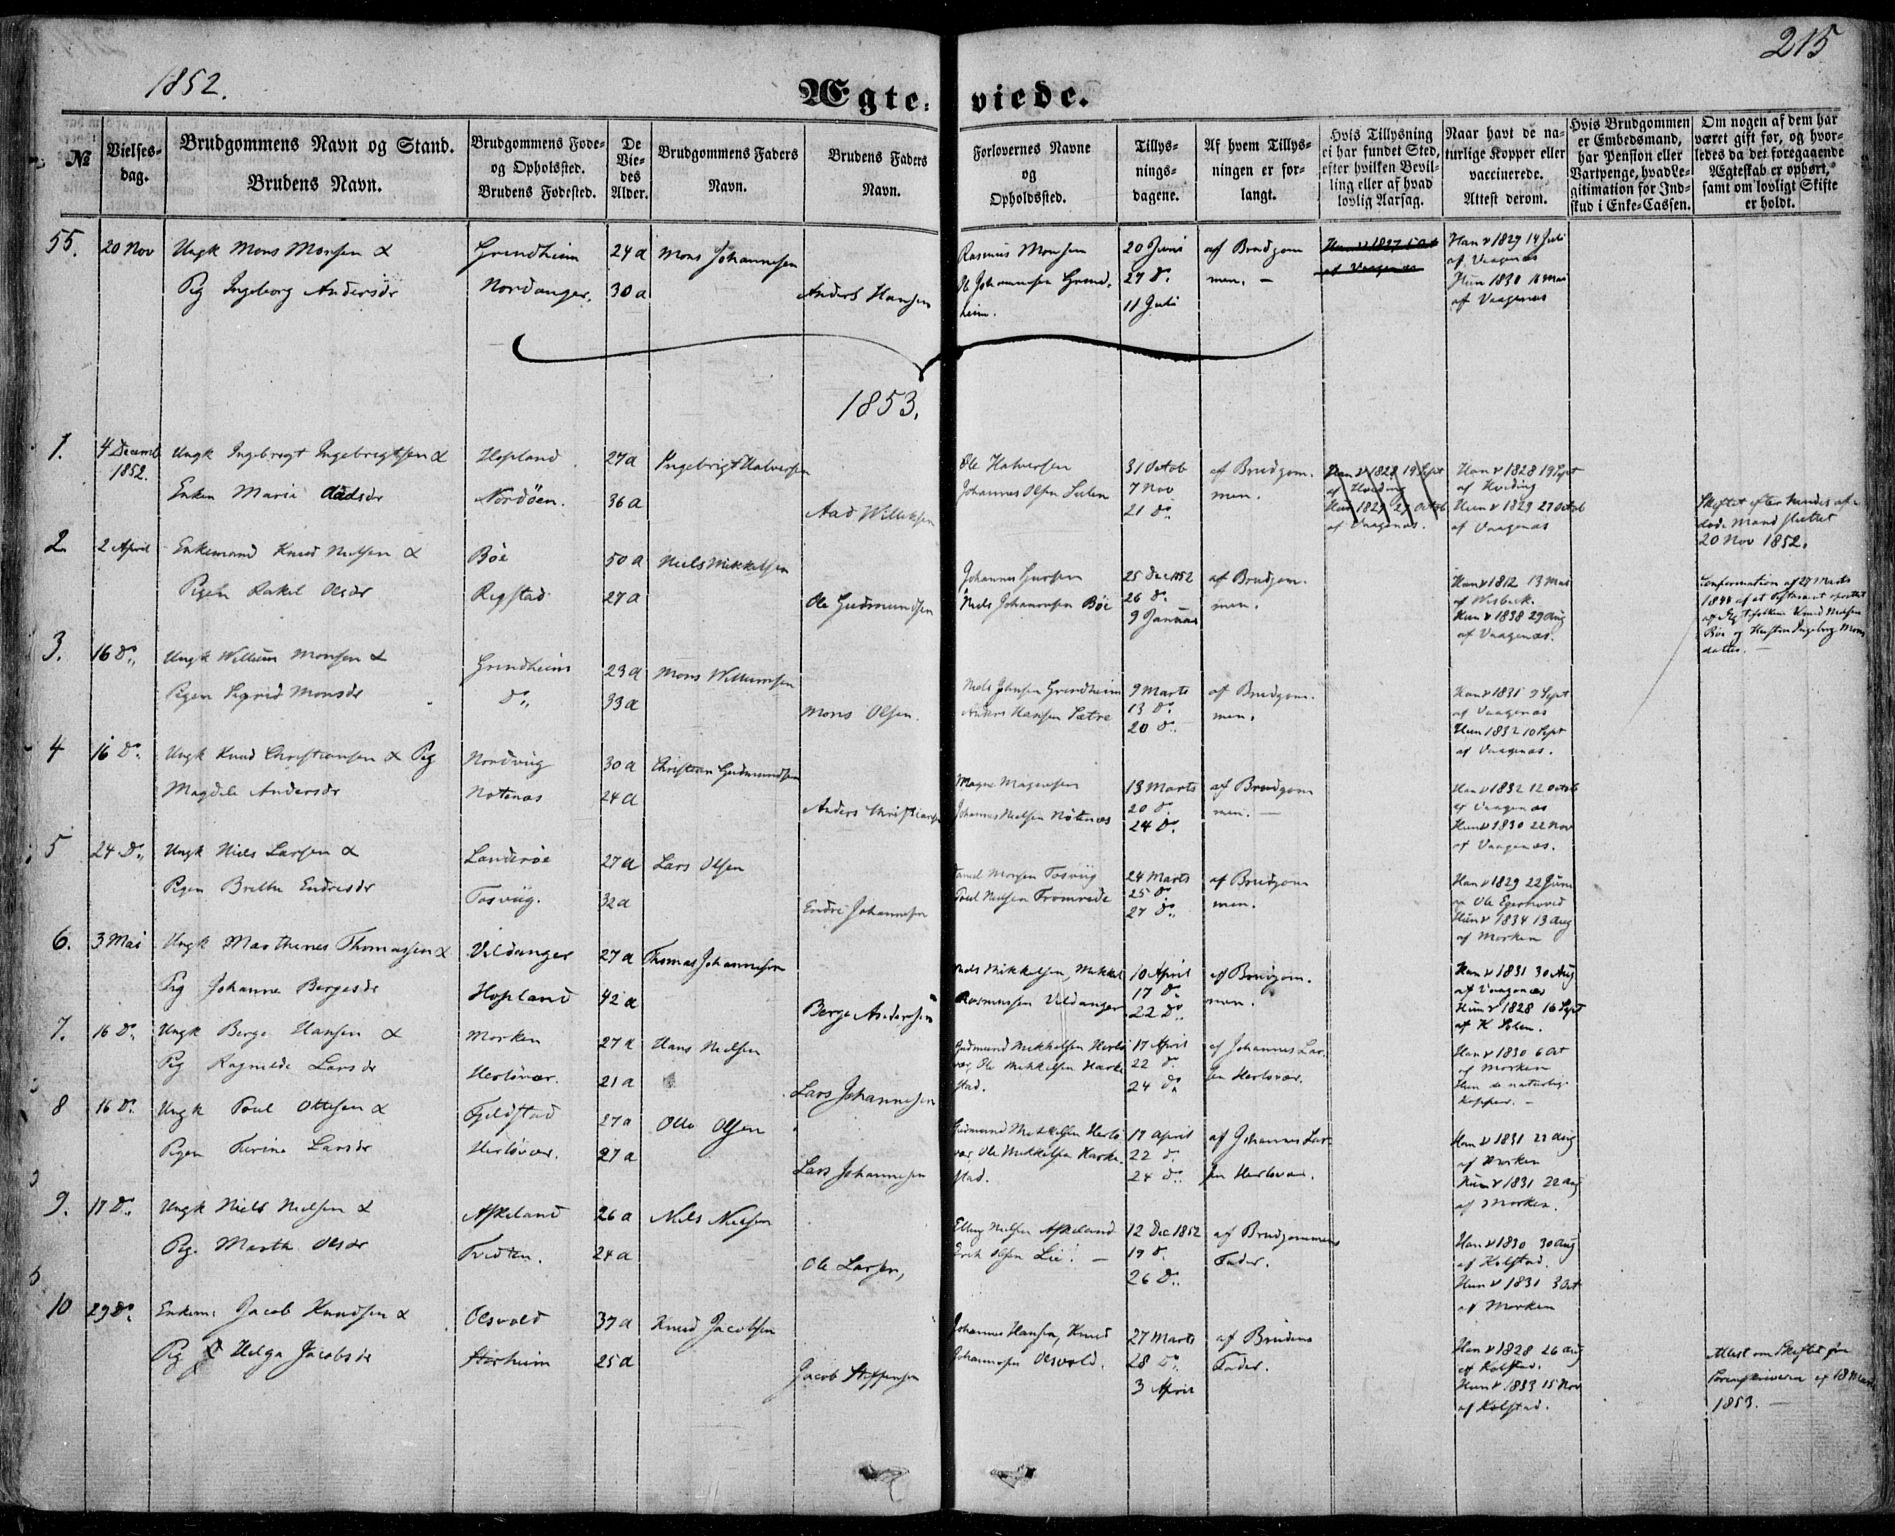 1852.
215
Ægte-viede.
№
Vielses-
dag.
Brudgommens Navn og Stand.
Brudens Navn.
Brudgommens Føde-
og Opholdssted.
Brudens Fødested.
De
Vie-
des
Alder.
Brudgommens Faders
Navn.
Brudens Faders
Navn.
Forlovernes Navne
og
Opholdssted.
Tillys-
nings-
dagene.
Af hvem Tillys-
ningen er for-
langt.
Hvis Tillysning
ei har fundet Sted,
efter hvilken Bevil-
ling eller af hvad
lovlig Aarsag.
Naar havt de na-
turlige Kopper eller
vaccinerede.
Attest derom.
Hvis Brudgommen
er Embedsmand,
har Pension eller
Vartpenge, hvad Le-
gitimation for Ind-
skud i Enke-Cassen.
Om nogen af dem har
været gift før, og hvor-
ledes da det foregaaende
Ægteskab er ophørt,
samt om lovligt Skifte
er holdt.
55. 20 Nov Ungk Mons Monsen &
Pig Ingeborg Andersdr
Grindheim
Nordanger.
24 a
30 a
Mons Johannesen
Anders Hansen
Rasmus Monsen
Johannesen Grind-
heim.
20 Juni
27 d°
11 Juli
af Brudgom
men. —
Han v 1829 14 Juli
af Vaagenæs
Hun 1830 16 Mai
af Vaagenæs
1853.
1. 4 Decemb
1852.
Ungk Ingebrigt Ingebrigtsen &
Enken Maria Aadsdr
Hopland
Nordöen.
27 a
36 a
Ingebrigt Halversen
Aad Willumsen
Ole Halversen
Johannes Olsen
31 Octob
7 Nov
21 d°
af Brudgom.
men.
Han v 1828 19 Sept
af Hveding
Hun 1829 27 Octob
af Vaagenæs.
Han v 1828 19 Sept
af Hveding
Hun v 1829 27 Octob
af Vaagenæs
Skiftet efter hendes af-
døde Mand sluttet
20 Nov 1852.
2. 2 April Enkemand Knud Nielsen &
Pigen Rakel Olsdr
Böe
Rigstad
50 a
27 a
Niels Mikkelsen
Ole Gudmundsen
Johannes
Niels Johannesen Böe
25 Dec 1852
26 d°
9 Januar
af Brudgom.
men.
Han v 1812 13 Mai
af
Hun v 1838 29 Aug
af Vaagenæs.
Confirmation af 27 Marts
1844 af et Testament oprettet
af Ægtefolkene Knud Nielsen
Böe og Hustru Ingeborg Mons
datter. —
3. 16 d°. Ungk Willum Monsen &
Pigen Sigrid Monsdr
Grindheim
d°.
23 a
33 a
Mons Willumsen
Mons Olsen.
Niels Johnsen Grindheim
Anders Hansen Sætre
9 Marts
13 d°
20 d°
af Brudgom.
men.
Han v 1831 9 Sept
af Vaagenæs
Hun 1832 10 Sept
af Vaagenæs.
4 16 d°. Ungk Knud Christiansen & Pig
Magdele Andersdr
Nordviig
Notenæs
30 a
24 a
Christian Gudmundsen
Anders Christiansen
Magne Magnesen
Johannes Nielsen Nötenæs
13 Marts
20 d°
24 d°
af Brudgom
men. —
Han v 1832 12 Octob
af Vaagenæs
Hun v 1830 22 Nov
af Vaagenæs.
5 24 d°. Ungk Niels Larsen &
Pigen Brithe Endresdr
Landeröe
Tosviig.
27 a
32 a
Lars Olsen
Endre Johannesen
Monsen Tosviig
Poul Nielsen Fromreide
24 Marts
25 d°
27 d°.
af Brudgom
men.
Han v 1829 22 Juni
Ole
Hun v 1834 13 Aug
af Morken
6. 3 Mai Ungk Marthines Thomassen &
Pig Johanne Bergesdr
Vildanger
Hopland
27 a
42 a
Thomas Johannesen
Berge Andersen
Niels Mikkelsen, Mikkel
Rasmussen Vildanger
10 April
17 d°
22 d°.
af Brudgom.
men.
Han v 1831 30 Aug
af Vaagenæs
Hun v 1828 16 Sept
af K
7. 16 d°. Ungk Berge Hansen &
Pig Ragnilde Larsdr
Morken
Herlövær.
27 a
21 a
Hans Nielsen
Lars Johannesen
Gudmund Mikkelsen Herlö
vær, Ole Mikkelsen Harke
stad.
17 April
22 d°
24 d°
af Johannes Lar.
sen Herlövær.
Han v 1830 6 Oct
af Morken
Hun de naturlig.
Kopper. —
8 16 d°. Ungk Poul Ottesen &
Pigen Karine Larsdr
Fjeldstad
Herlövær.
27 a
27 a
Otto Olsen
Lars Johannesen
Gudmund Mikkelsen Herlö
vær, Ole Mikkelsen Harke.
stad.
17 April
22 d°
24 d°.
af Johannes Lar
sen Herlövær.
Han v 1831 22 Aug
af Morken
Hun v 1831 22 Aug
af Morken.
9. 17 d°. Ungk Niels Nielsen &
Pig. Marthe Olsdr
Askeland
Tvedten.
26 a
24 a
Niels Nielsen
Ole Larsen,
Elling Nielsen Askeland
Erik Olsen Lie. —
12 Dec 1852
19 d°
26 d°.
af Brudgommens
Fader.
Han v 1830 30 Aug
af Kolstad.
Hun v 1831 3 Oct
af Morken
10 29 d°. Enkem: Jacob Knudsen &
Pig Helga Jacobsdr
Olsvold
Storheim
37 a
25 a
Knud Jacobsen
Jacob Steffensen
Johannes Hansen, Knud
Johannesen Olsvold.
27 Marts
28 d°.
3 April
af Brudens
Fader.
Han v 1828 26 Aug
af Kolstad.
Hun v 1833 15 Nov
af Kolstad.
Attest om Skiftet fra
Sorenskriveren af 18 Marts
1853. —